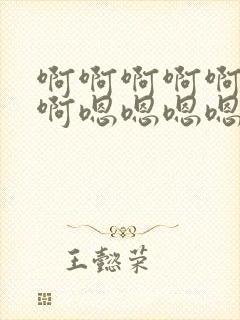 啊啊啊啊啊
啊嗯嗯嗯嗯
王懿荣